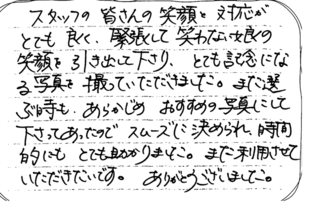 スタッフの皆さんの笑顔と対応が
とても良く、緊張して笑わない娘の
笑顔を引き出して下さり、とても記念にな
る写真を撮っていただきました。また選
ぶ時も、あらかじめおすすめの写真にして
下さってあったのでスムーズに決められ、時間
的にもとても助かりました。また利用させて
いただきたいです。ありがとうございました。